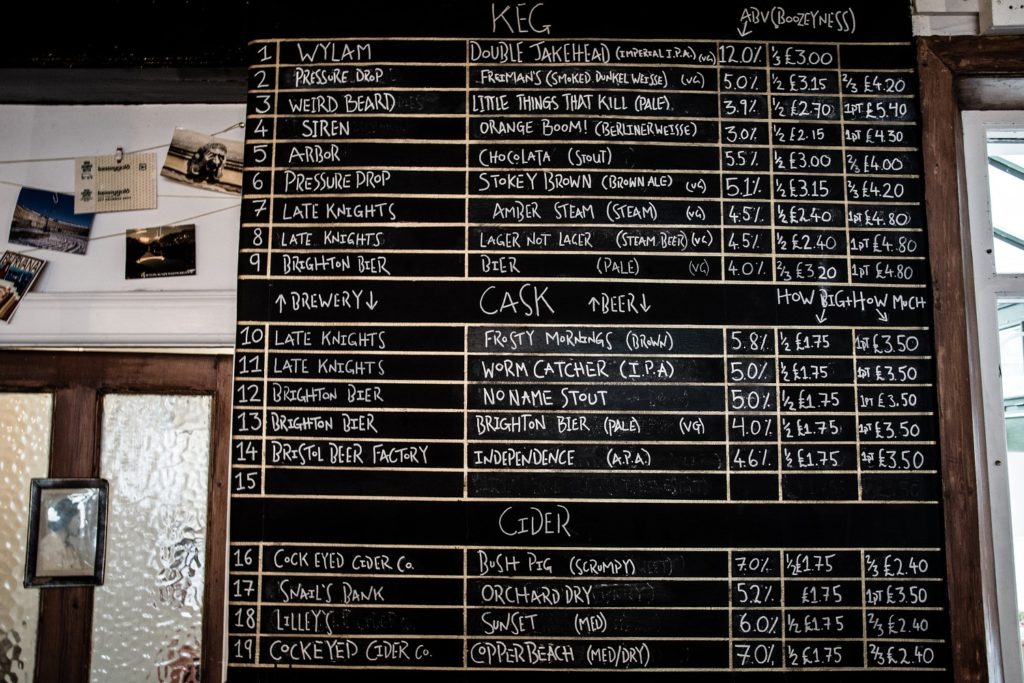 KEG ABV (BOOZEYNESS)
1 WYLAM DOUBLE JAKEHEAD (IMPERIAL I.P.A.) (VG) 12.0% ⅓ £3.00
2 PRESSURE DROP FREIMAN'S (SMOKED DUNKEL WEISSE) (VG) 5.0% ½ £3.15 ⅔ £4.20
3 WEIRD BEARD LITTLE THINGS THAT KILL (PALE) 3.9% ½ £2.70 1PT £5.40
4 SIREN ORANGE BOOM! (BERLINERWEISSE) 3.0% ½ £2.15 1PT £4.30
5 ARBOR CHOCOLATA (STOUT) 5.5% ½ £3.00 ⅔ £4.00
6 PRESSURE DROP STOKEY BROWN (BROWN ALE) (VG) 5.1% ½ £3.15 ⅔ £4.20
7 LATE KNIGHTS AMBER STEAM (STEAM) (VG) 4.5% ½ £2.40 1PT £4.80
8 LATE KNIGHTS LAGER NOT LAGER (STEAM BEER) (VG) 4.5% ½ £2.40 1PT £4.80
9 BRIGHTON BIER BIER (PALE) (VG) 4.0% ⅔ £3.20 1PT £4.80
↑ BREWERY ↓ CASK ↑ BEER ↓ HOW BIG + HOW MUCH
10 LATE KNIGHTS FROSTY MORNINGS (BROWN) 5.8% ½ £1.75 1PT £3.50
11 LATE KNIGHTS WORM CATCHER (I.P.A) 5.0% ½ £1.75 1PT £3.50
12 BRIGHTON BIER NO NAME STOUT 5.0% ½ £1.75 1PT £3.50
13 BRIGHTON BIER BRIGHTON BIER (PALE) (VG) 4.0% ½ £1.75 1PT £3.50
14 BRISTOL BEER FACTORY INDEPENDENCE (A.P.A.) 4.6% ½ £1.75 1PT £3.50
15
CIDER
16 COCK EYED CIDER CO. BUSH PIG (SCRUMPY) 7.0% ½ £1.75 ⅔ £2.40
17 SNAIL'S BANK ORCHARD DRY 5.2% £1.75 1PT £3.50
18 LILLEY'S SUNSET (MED) 6.0% ½ £1.75 ⅔ £2.40
19 COCKEYED CIDER CO. COPPER BEACH (MED/DRY) 7.0% ½ £1.75 ⅔ £2.40